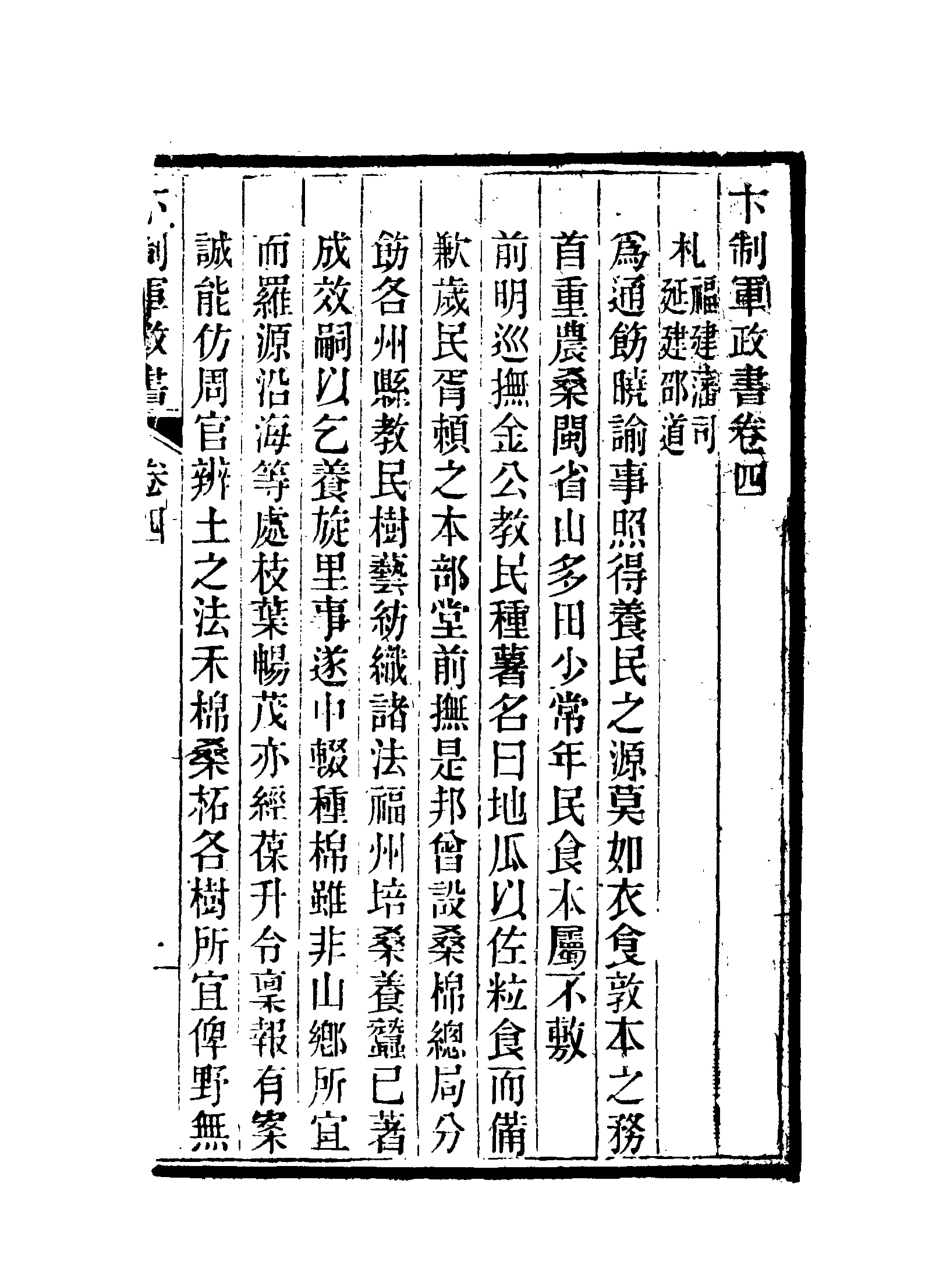 卞制軍政書卷四
札福建藩司
延建邵道
爲通飭曉諭事照得養民之源莫如衣食敦本之務
首重農桑閩省山多田少常年民食本屬不敷
前明巡撫金公教民種薯名曰地瓜以佐粒食而備
歉歲民胥賴之本部堂前撫是邦曾設桑棉總局分
飭各州縣教民樹藝紡織諸法福州培桑養蠶已著
成效嗣以乞養旋里事遂中輟種棉雖非山鄕所宜
而羅源沿海等處枝葉暢茂亦經葆升令稟報有案
誠能仿周官辨土之法禾棉桑柘各樹所宜俾野無
卞制軍政書
卷四
一